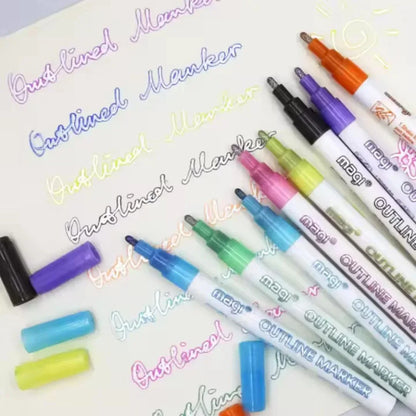 Outlined Marker
Outlined Marker
Outlined Marker
Outlined Marker
Outlined Marker
Outlined Marker
Outlined Marker
Outlined
magi
OUTLINE MARKER
magi
OUTLINE MARKER
magi
OUTLINE MARKER
magi
OUTLINE
magi
OUTLINE